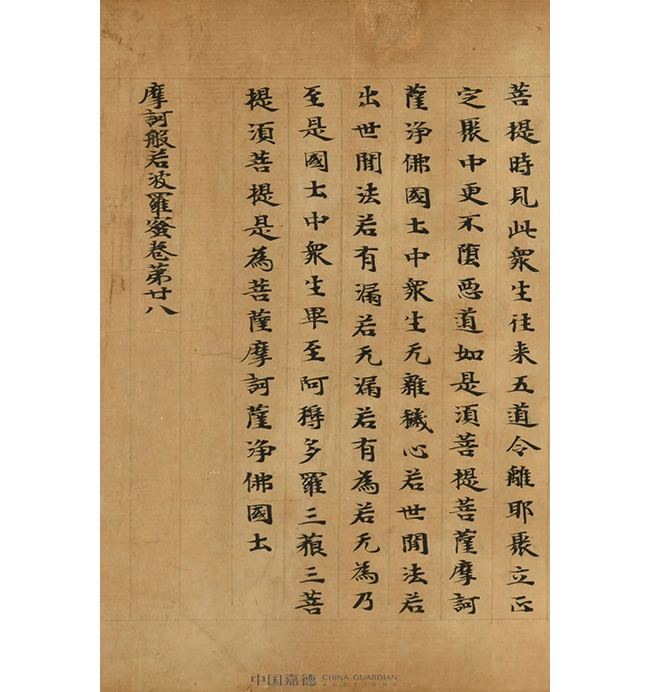 菩提時見此衆生往来五道令離耶聚立正
定聚中更不墮惡道如是湏菩提菩薩摩訶
薩浄佛國土中衆生无雜穢心若世間法若
出世間法若有漏若无漏若有為若无為乃
至是國土中衆生畢至阿耨多羅三藐三菩
提湏菩提是為菩薩摩訶薩浄佛國土
摩訶般若波羅蜜卷第廿八
中国嘉德 CHINA GUARDIAN